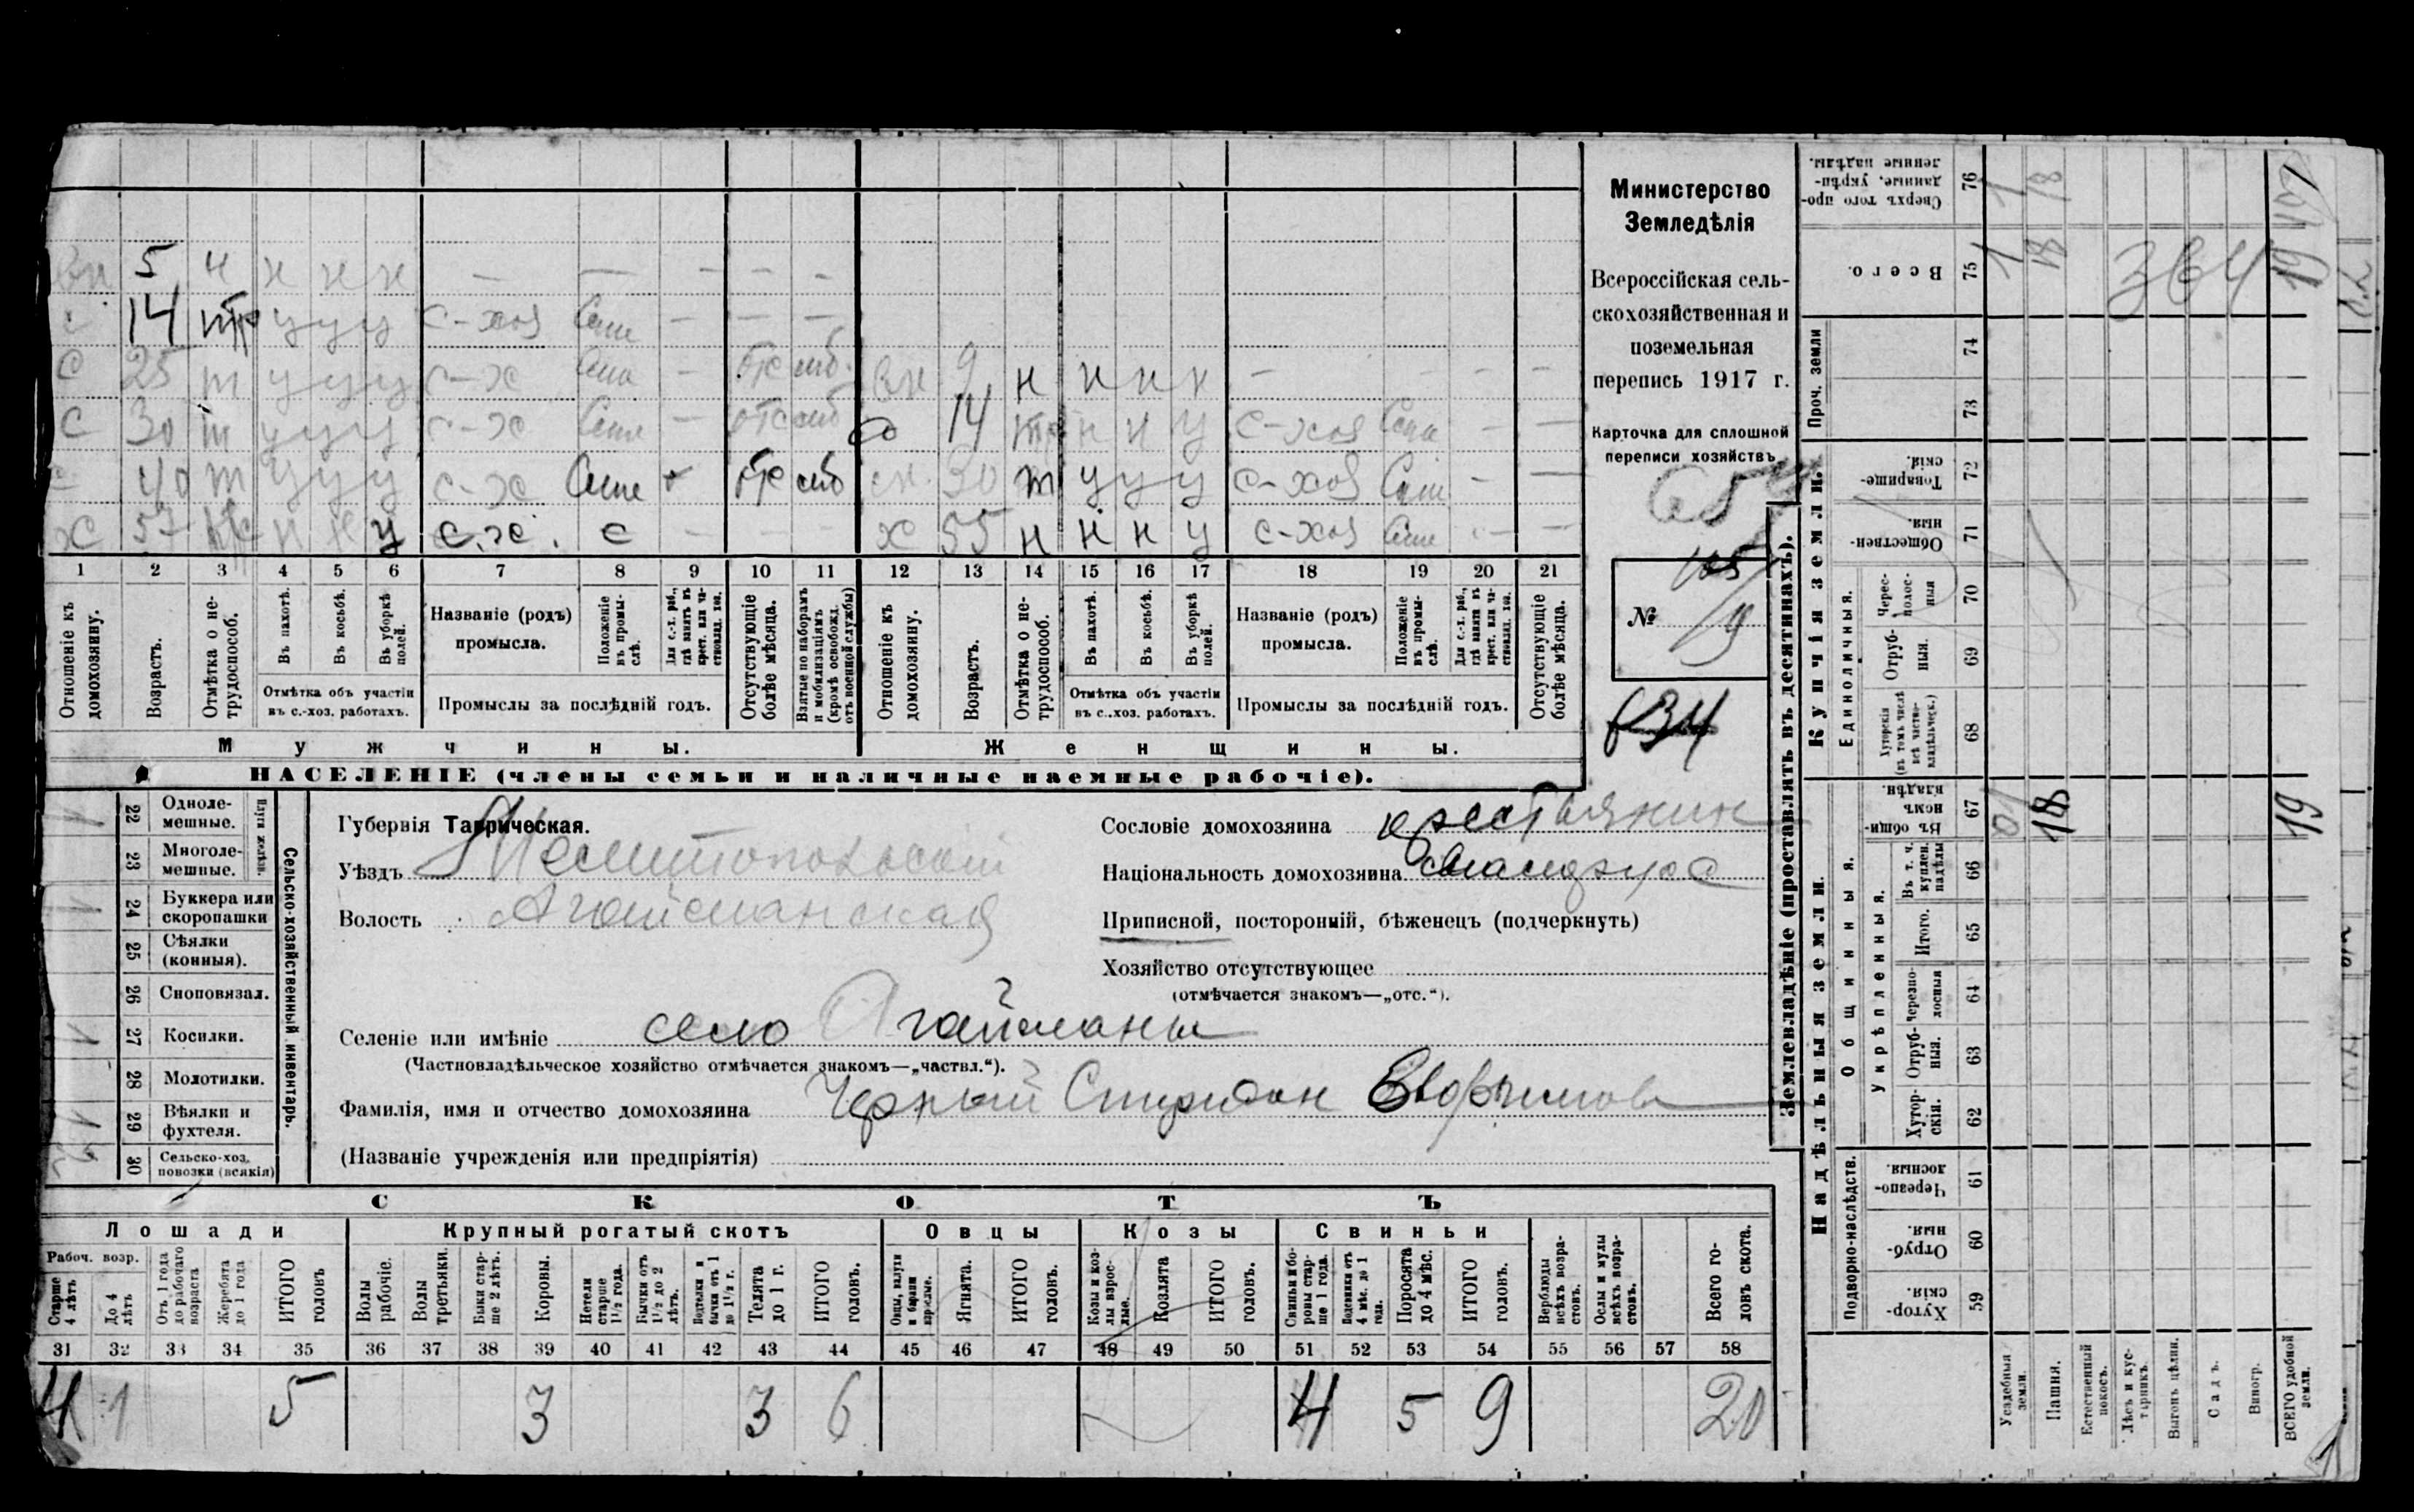 5 н н н н — — — — —
14 тр у у у с-хоз — — —
С 25 т у у у с-х — вн 9 н н н н — — — —
С 30 т у у у с-х — 14 н н у с-хоз — —
40 т у у у с-х отс моб 30 т у у у с-хоз — —
х 57 н н у с.х. с — — — х 55 н н н у с-хоз — —
1 2 3 4 5 6 7 8 9 10 11 12 13 14 15 16 17 18 19 20 21
Отношеніе къ домохозяину.
Возрастъ.
Отмѣтка о не-трудоспособ.
Въ пахотѣ.
Въ косьбѣ.
Въ уборкѣ полей.
Отмѣтка объ участіи
въ с.-хоз. работахъ.
Названіе (родъ)
промысла.
Положеніе въ промы-слѣ.
Для с.-х. раб., гдѣ занятъ въ крест. или ча-ствовлад. хоз.
Промыслы за послѣдній годъ.
Отсутствующіе болѣе мѣсяца.
Взятые по наборамъ и мобилизаціямъ (кромѣ освобожд. отъ военной службы)
Отношеніе къ домохозяину.
Возрастъ.
Отмѣтка о не-трудоспособ.
Въ пахотѣ.
Въ косьбѣ.
Въ уборкѣ полей.
Отмѣтка объ участіи
въ с.-хоз. работахъ.
Названіе (родъ)
промысла.
Положеніе въ промы-слѣ.
Для с.-х. раб., гдѣ занятъ въ крест. или ча-ствовлад. хоз.
Промыслы за послѣдній годъ.
Отсутствующіе болѣе мѣсяца.
Мужчины. Женщины.
НАСЕЛЕНІЕ (члены семьи и наличные наемные рабочіе).
Министерство
Земледѣлія
Всероссійская сель-
скохозяйственная и
поземельная
перепись 1917 г.
Карточка для сплошной
переписи хозяйствъ
№ 105
19
634
22 Одноле-мешные.
23 Многоле-мешные.
Плуги желѣзн.
24 Буккера или скоропашки
25 Сѣялки (конныя).
26 Сноповязал.
27 Косилки.
28 Молотилки.
29 Вѣялки и фухтеля.
30 Сельско-хоз. повозки (всякія)
Сельско-хозяйственный инвентарь.
Губернія Таврическая.
Уѣздъ Мелитопольскій
Волость Агайманская
Сословіе домохозяина крестьянин
Національность домохозяина
Приписной, посторонній, бѣженецъ (подчеркнуть)
Хозяйство отсутствующее
(отмѣчается знакомъ—„отс.“).
Селеніе или имѣніе село Агайманы
(Частновладѣльческое хозяйство отмѣчается знакомъ—„частвл.“).
Фамилія, имя и отчество домохозяина Черный Спиридон
(Названіе учрежденія или предпріятія)
СКОТЪ
Лошади Крупный рогатый скотъ Овцы Козы Свиньи
Рабоч. возр.
Старше 4 лѣтъ
До 4 лѣтъ
Отъ 1 года до рабочаго возраста
Жеребята до 1 года
ИТОГО головъ
Волы рабочіе.
Волы третьяки.
Быки стар-ше 2 лѣтъ.
Коровы.
Нетели старше 1½ года.
Бычки отъ 1½ до 2 лѣтъ.
Подтелки и бычки отъ 1 до 1½ г.
Телята до 1 г.
ИТОГО головъ.
Овцы, валухи и бараны взрослые.
Ягнята.
ИТОГО головъ.
Козы и коз-лы взрос-лые.
Козлята
ИТОГО головъ.
Свиньи и бо-ровы стар-ше 1 года.
Подсвинки отъ 4 мѣс. до 1 года.
Поросята до 4 мѣс.
ИТОГО головъ.
Верблюды всѣхъ возра-стовъ.
Ослы и мулы всѣхъ возра-стовъ.
Всего го-ловъ скота.
31 32 33 34 35 36 37 38 39 40 41 42 43 44 45 46 47 48 49 50 51 52 53 54 55 56 57 58
4 1 5 3 3 6 4 5 9 20
Землевладѣніе (проставлять въ десятинахъ).
Надѣльныя земли. Купчія земли. Проч. земли
Подворно-наслѣдств. Общинныя. Укрѣпленныя. Единоличныя.
Хутор-скія. 59
Отруб-ныя. 60
Черезпо-лосныя. 61
Хутор-скія. 62
Отруб-ныя. 63
Черезпо-лосныя 64
Итого. 65
Въ т. ч. куплен. надѣлы 66
Въ общин-номъ владѣн. 67
Хуторскія (въ томъ числѣ всѣ частно-владѣльческ.) 68
Отруб-ныя. 69
Черес-полос-ныя 70
Обществен-ныя. 71
Товарище-скія. 72
73
74
Всего. 75
Сверхъ того про-данные, укрѣп-ленные надѣлы. 76
Усадебныя земли.
Пашня.
Естественный покосъ.
Лѣсъ и кус-тарникъ.
Выгонъ цѣлин.
Садъ.
Виногр.
ВСЕГО удобной земли.
18
19
1
18
364
19
1
18